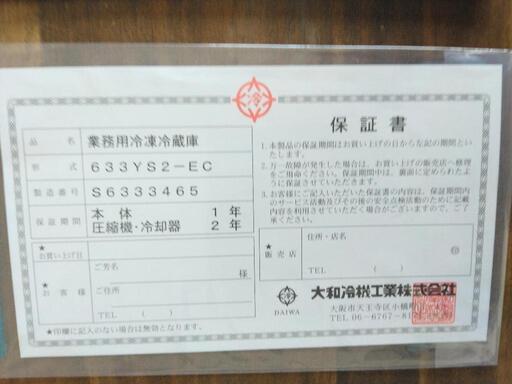 冷
保証書
品名 業務用冷凍冷蔵庫
形式 633YS2-EC
製造番号 S6333465
保証期間 本体 1年
圧縮機・冷却器 2年
★お買い上げ日
★お客様
ご芳名 様
ご住所
TEL ( )
★印欄に記入のない場合は無効となります。
1.本製品の保証期間はお買い上げの日から左記の期間といたします。
2.万一故障が発生した場合は、お買い上げの販売店へ修理をご用命ください。保証期間中は、裏面に定められたように保証いたします。
3.お客様にご記入いただいた保証書の内容は、保証期間内のサービス活動及びその後の安全点検活動のために記載内容を利用させていただく場合がございますので、ご了承ください。
★販売店
住所・店名
印
TEL ( )
冷
DAIWA
大和冷機工業株式会社
大阪市天王寺区小橋町
TEL 06-6767-81